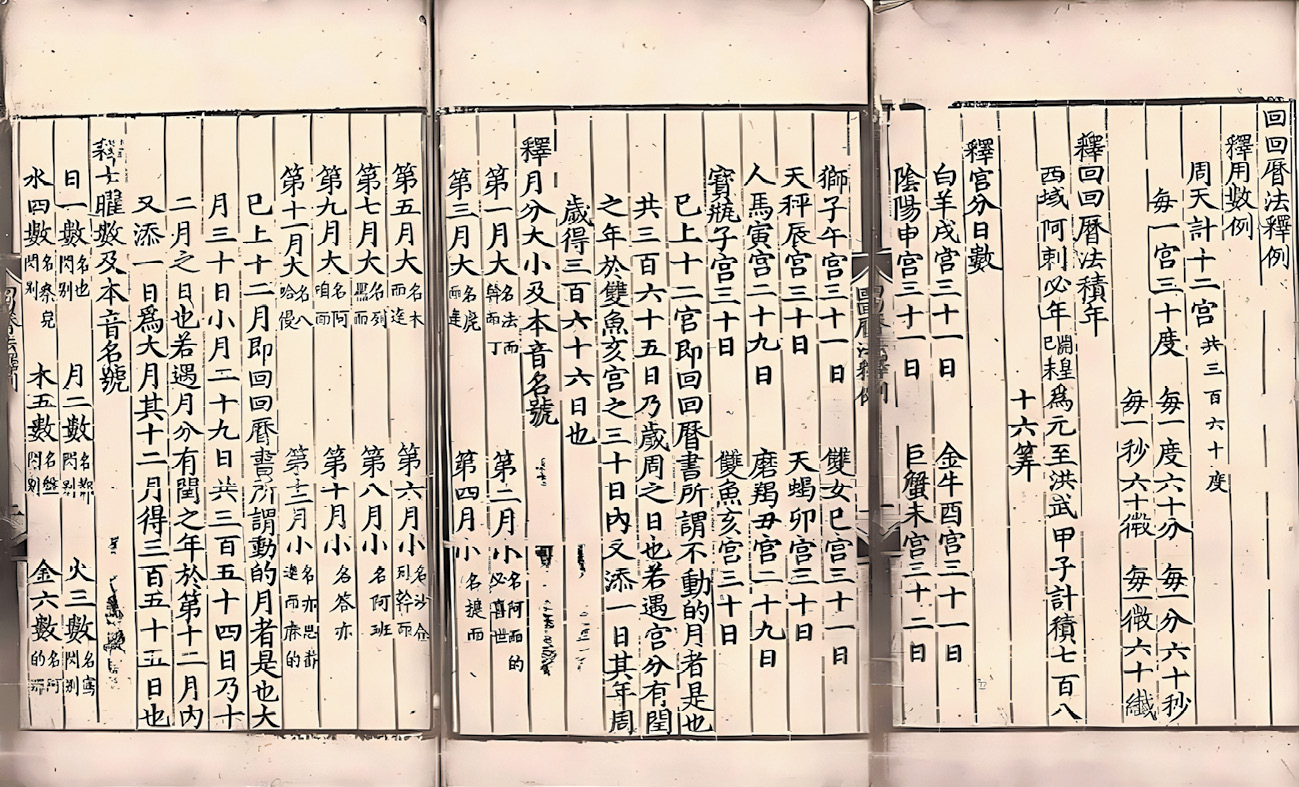 回回曆法釋例
釋用數例
周天計十二宫共三百六十度
每一宫三十度 每一度六十分 每一分六十秒
每一秒六十微 每一微六十纖
釋回回曆法積年
西域阿剌必年開皇己未爲元至洪武甲子計積七百八
十六筭
釋宫分日數
白羊戌宫三十一日 金牛酉宫三十一日
陰陽申宫三十一日 巨蟹未宫三十二日
回回曆法釋例
獅子午宫三十一日 雙女巳宫三十一日
天秤辰宫三十日 天蝎卯宫三十日
人馬寅宫二十九日 磨羯丑宫二十九日
寳瓶子宫三十日 雙魚亥宫三十日
已上十二宫即回回曆書所謂不動的月者是也
共三百六十五日乃歲周之日也若遇宫分有閏
之年於雙魚亥宫之三十日內又添一日其年周
歲得三百六十六日也
釋月分大小及本音名號
第一月大名法而斡而丁 第二月小名阿而的必喜世
第三月大名虎而達 第四月小名提而
第五月大名木而達 第六月小名沙合列斡而
第七月大名列黑而 第八月小名阿班
第九月大名阿咱而 第十月小名答亦
第十一月大名八哈慢 第十二月小名亦思番達而麻的
已上十二月即回回曆書所謂動的月者是也大
月三十日小月二十九日共三百五十四日乃十
二月之日也若遇月分有閏之年於第十二月內
又添一日爲大月其十二月得三百五十五日也
釋七曜數及本音名號
日一數名也閃别 月二數名都閃别 火三數名寫閃别
水四數名察兒閃别 木五數名盤閃别 金六數名阿的那